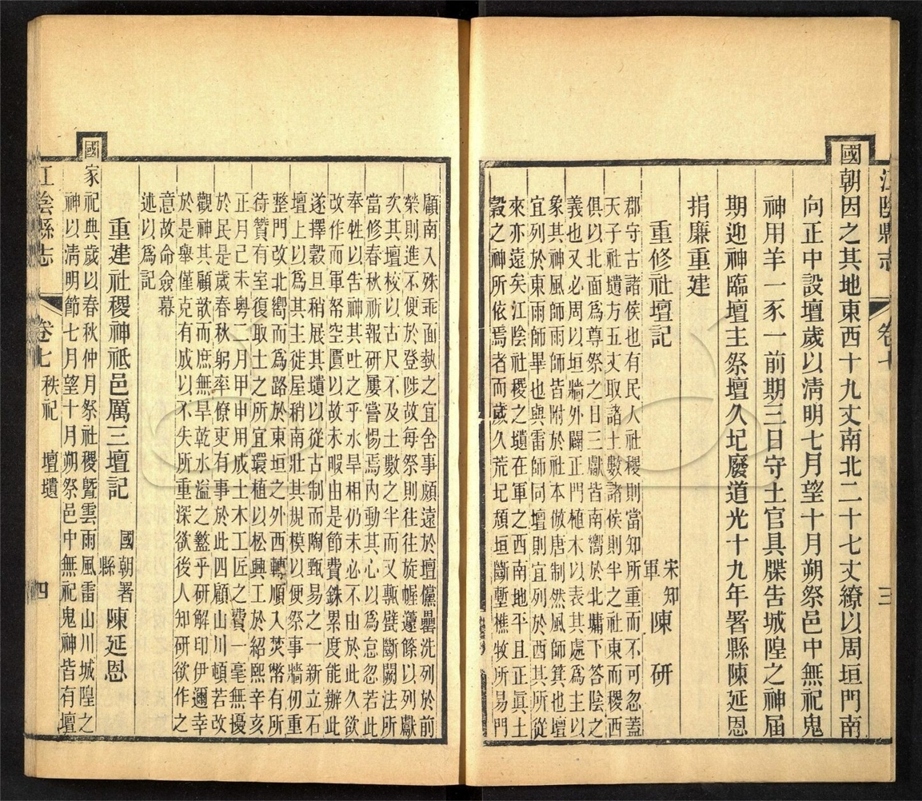 江陰縣志
卷七
三
國朝因之其地東西十九丈南北二十七丈繚以周垣門南
向正中設壇歲以清明七月望十月朔祭邑中無祀鬼
神用羊一豕一前期三日守土官具牒告城隍之神屆
期迎神臨壇主祭壇久圮廢道光十九年署縣陳延恩
捐廉重建
重修社壇記
宋知軍陳 研
郡守古諸侯也有民人社稷則當知所重而不可忽蓋
天子社遺方五丈取諸土數諸侯則半之社東而稷西
俱以北面爲尊祭之日三獻皆南嚮以於北墉下答陰之
義也又必周以垣牆外闢正門植木以表其處爲主以
象其神風師雨師皆附於社本倣唐制然風師箕也壇
宜列於東雨師畢也與雷師同壇則宜列於西其所從
來亦遠矣江陰社稷之壝在軍之西南地平且正眞土
穀之神所依焉者而歲久荒圮頹垣斷塹樵牧所易門
顧南入殊乖面埶之宜舍事頗遠於壇儻罍洗列於前
榮則進不便於登陟故每祭則往往旋幄蘧篨以列獻
次其壇校以古尺不及土數之半而又瓢甓斷闕法所
當修春秋祈報研屢嘗惕焉內動其心以爲怠忽若此
奉牲以告神其吐之乎水旱相仍未必不由於此久欲
改作而軍帑空匱以故未暇由是節費銖累度能辦此
遂擇穀旦稍展其壝以從古制而陶甄易之一新立石
壇上以爲其主徙屋稍南壯其規模以便祭事牆仞重
整門改北嚮而爲路於東垣之外西轉順入焚幣有所
待贊有室復取土之所宜環植以松興工於紹熙辛亥
正月己未粤二月甲申用成土木工匠之費一毫無擾
於民是歲春秋躬率僚吏有事於此四顧山川頓若改
觀神其顧歆而庶無旱乾水溢之盭乎研解印伊邇幸
於是舉僅克有成以不失所重深欲後人知研欲作之
意故命僉幕
述以爲記
重建社稷神祇邑厲三壇記
國朝署縣陳延恩
國家祀典歲以春秋仲月祭社稷曁雲雨風雷山川城隍之
神以清明節七月望十月朔祭邑中無祀鬼神皆有壇
江陰縣志
卷七 秩祀 壇壝
四